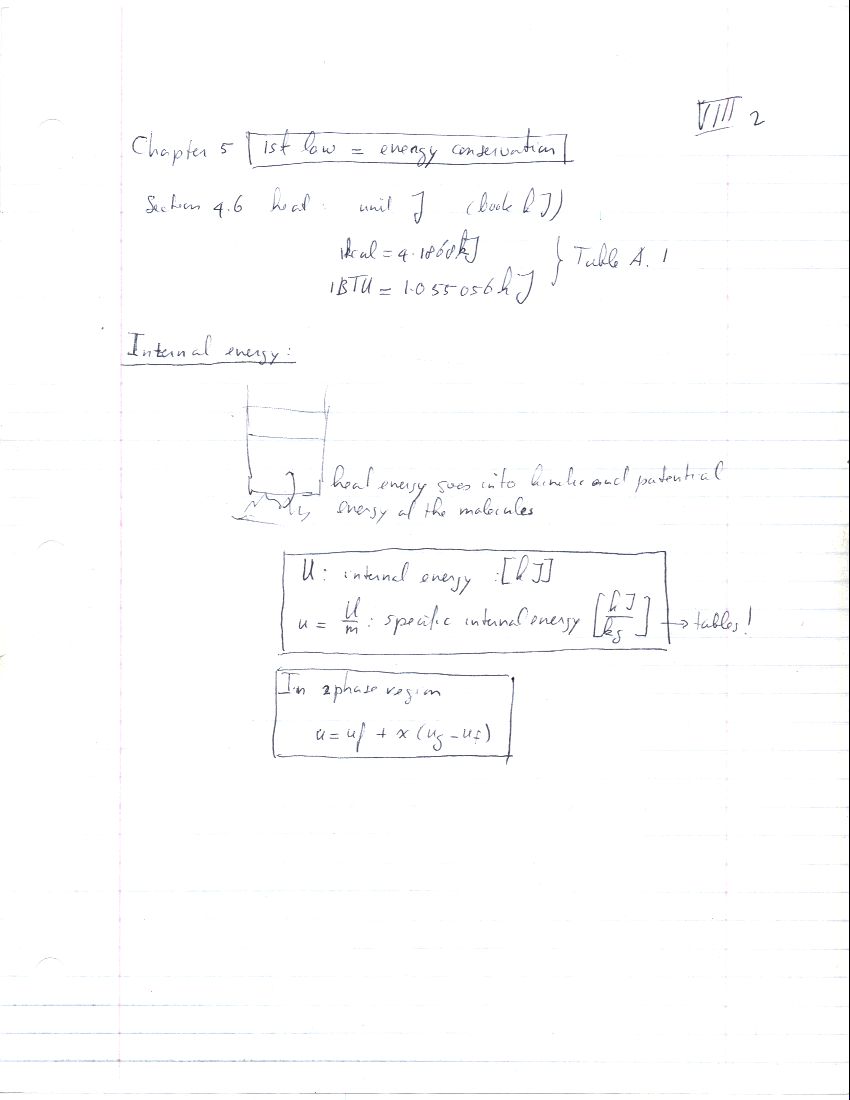 VIII 2
Chapter 5 1st law = energy conservation
Section 4.6 heat: unit J (book kJ)
1kcal = 4.1868kJ
1BTU = 1.055056kJ } Table A.1
Internal energy:
heat energy goes into kinetic and potential
energy of the molecules
U: internal energy :[kJ]
u = U/m : specific internal energy [kJ/kg] → tables!
In 2phase region
u = uf + x (ug - uf)